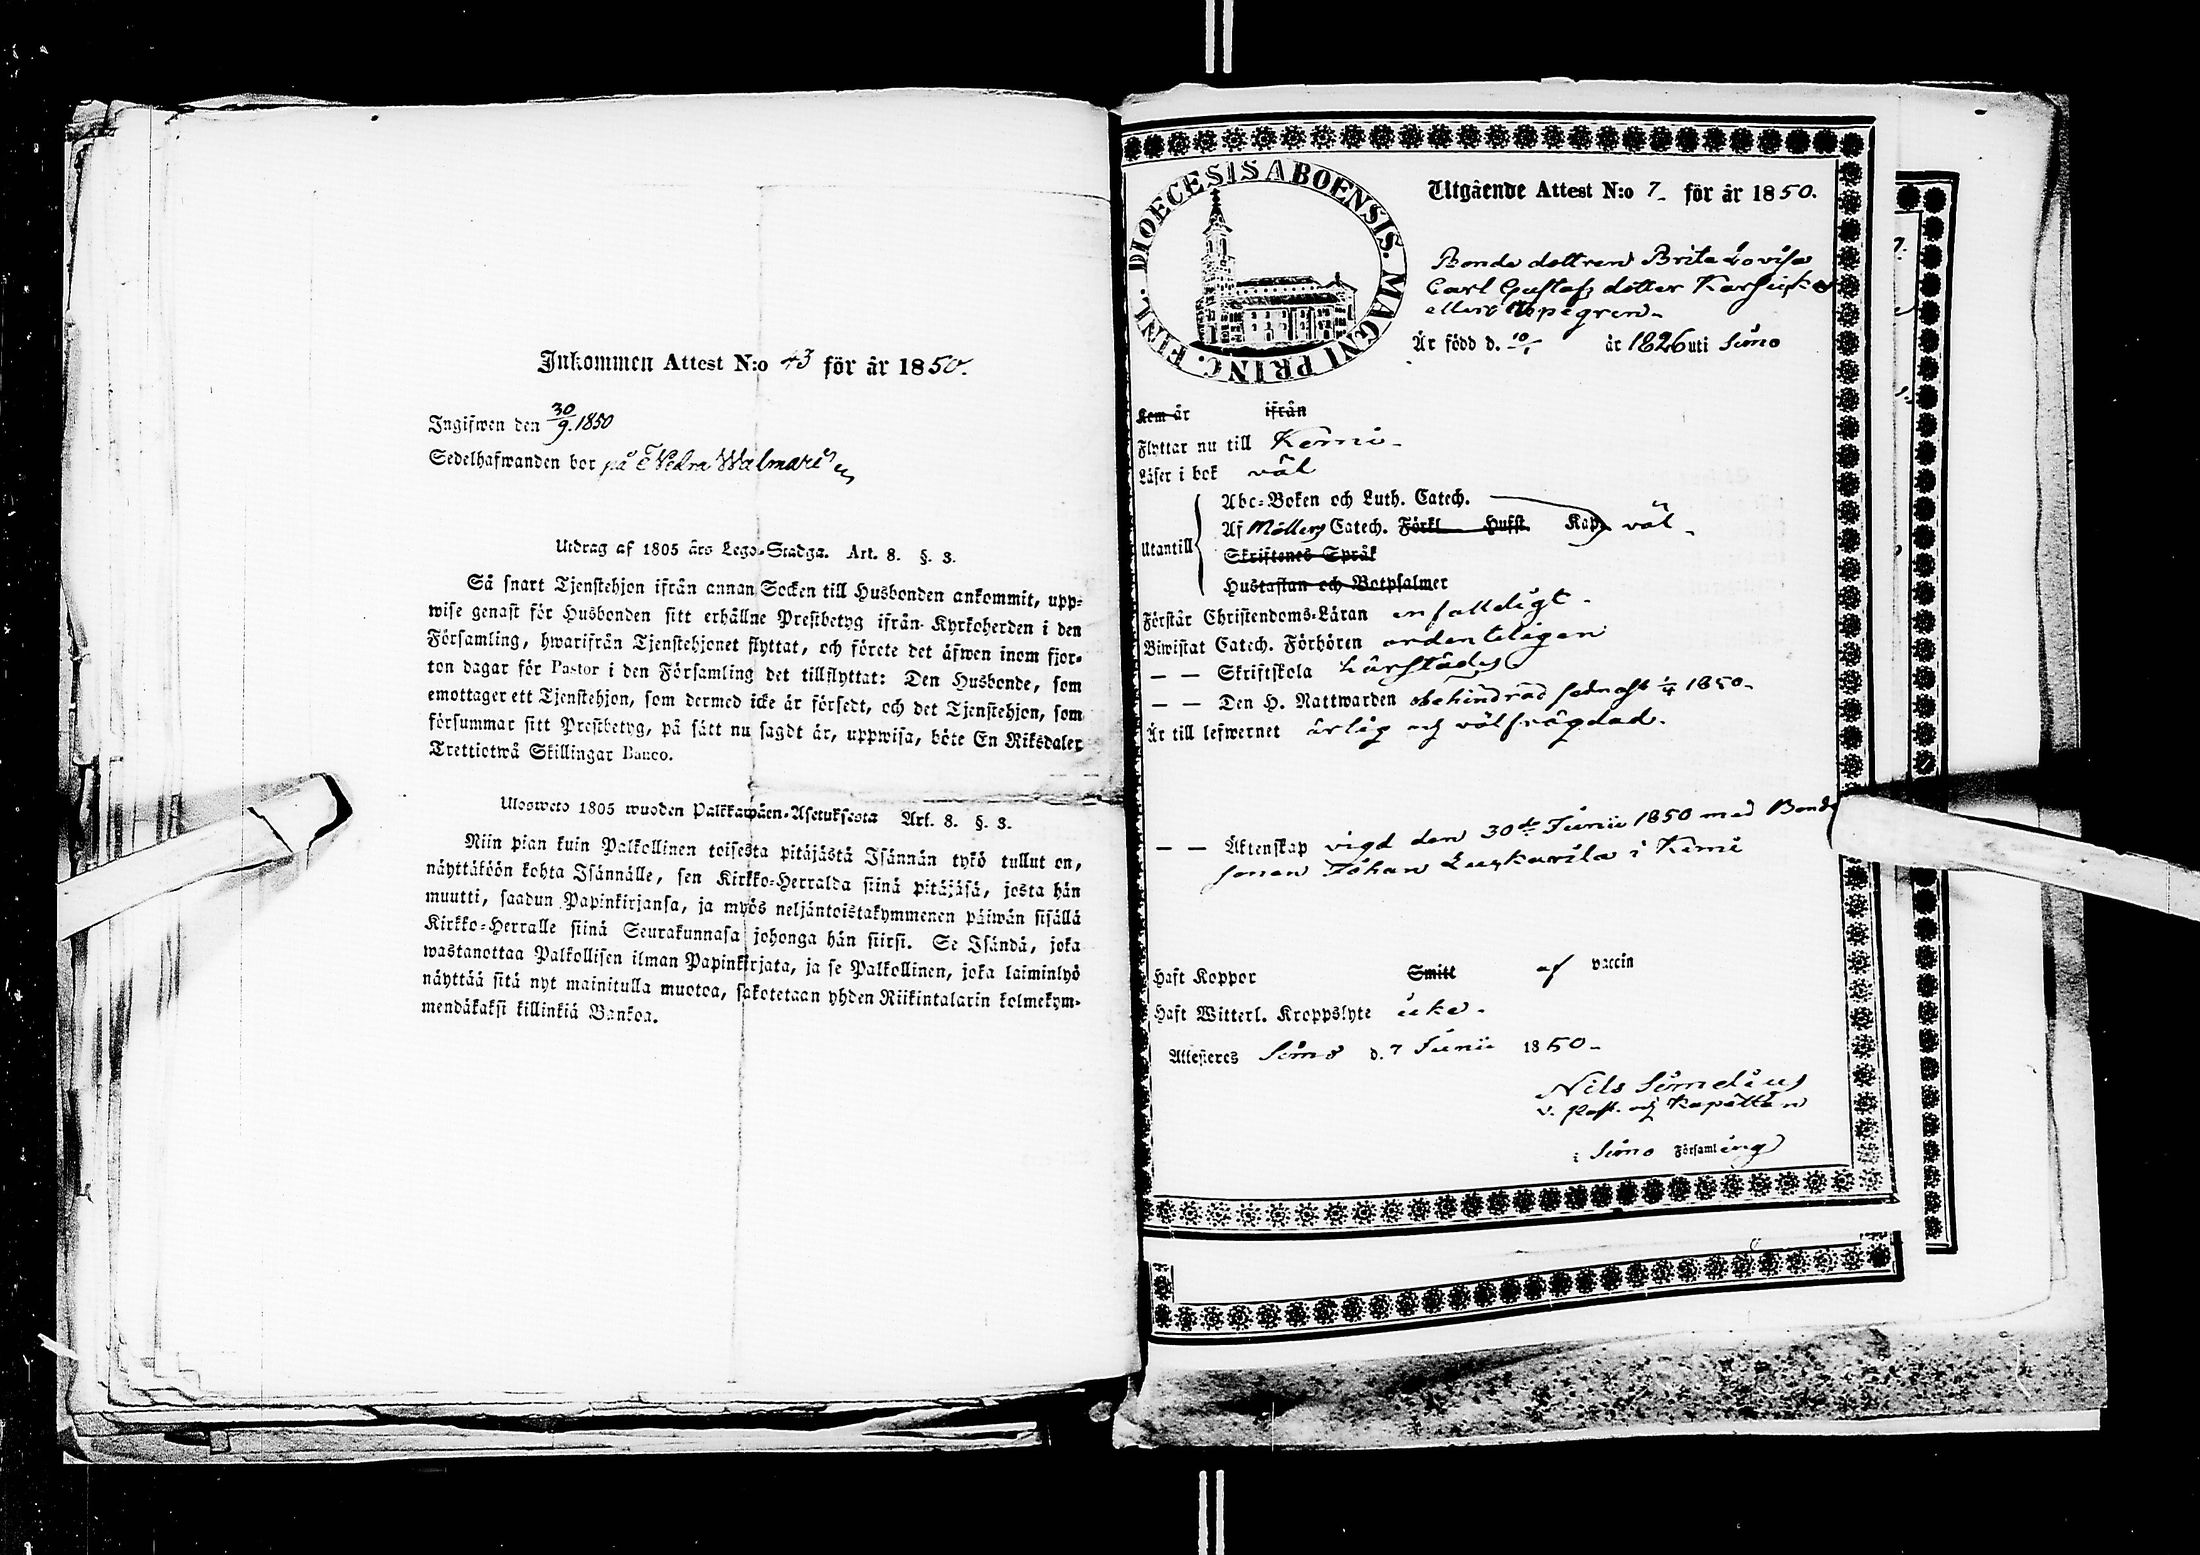 Inkommen Attest N:o 43 för år 1850.
Ingifwen den 30/9. 1850
Sedelhafwanden bor på
Utdrag af 1805 års Lego-Stadga. Art. 8. §. 3.
Så snart Tjenstehjon ifrån annan Socken till Husbonden ankommit, upp-
wise genast för Husbonden sitt erhållne Prestbetyg ifrån Kyrkoherden i den
Församling, hwarifrån Tjenstehjonet flyttat, och förete det äfwen inom fjor-
ton dagar för Pastor i den Församling det tillflyttat: Den Husbonde, som
emottager ett Tjenstehjon, som dermed icke är försedt, och det Tjenstehjon, som
försummar sitt Prestbetyg, på sätt nu sagdt är, uppwisa, böte En Riksdaler
Trettiotwå Skillingar Banco.
Ulosweto 1805 wuoden Palkkawäen-Asetuksesta Art. 8. §. 3.
Niin pian kuin Palkollinen toisesta pitäjästä Isännän tykö tullut on,
näyttäköön kohta Isännälle, sen Kirkko-Herralda siinä pitäjäsä, josta hän
muutti, saadun Papinkirjansa, ja myös neljäntoistakymmenen päiwän sisällä
Kirkko-Herralle siinä Seurakunnasa johonga hän siirsi. Se Isändä, joka
wastanottaa Palkollisen ilman Papinkirjata, ja se Palkollinen, joka laiminlyö
näyttää sitä nyt mainitulla muotoa, sakotetaan yhden Riikintalarin kolmekym-
mendäkaksi killinkiä Bankoa.
DIOECESIS ABOENSIS. MAGNI PRINC. FINL.
Utgående Attest N:o 7 för år 1850.
Bonde dottren Brita Lovisa
Carl Gustafs dotter
eller
Är född d. 10/1 år 1826 uti Simo
Kom år ifrån
Flyttar nu till Kemi
Läser i bok väl
Utantill
Abc-Boken och Luth. Catech.
Af Möllers Catech. Förkl. Hufst. Kap. väl
Skriftenes Språk
Hustaflan och Botpsalmer
Förstår Christendoms-Läran enfaldigt
Biwistat Catech. Förhören ordenteligen
— — Skriftskola härstädes
— — Den H. Nattwarden obehindrad sednast 1/4 1850
Är till lefwernet ärlig och välfrägdad.
— — Äktenskap vigd den 30de Junii 1850 med Bonde
sonen Johan i Kemi
Haft Koppor Smitt af vaccin
Haft Witterl. Kroppslyte icke
Attesteres Simo d. 7 Junii 1850
Nils Simelius
v. Past. och Kapellan
i Simo Församling